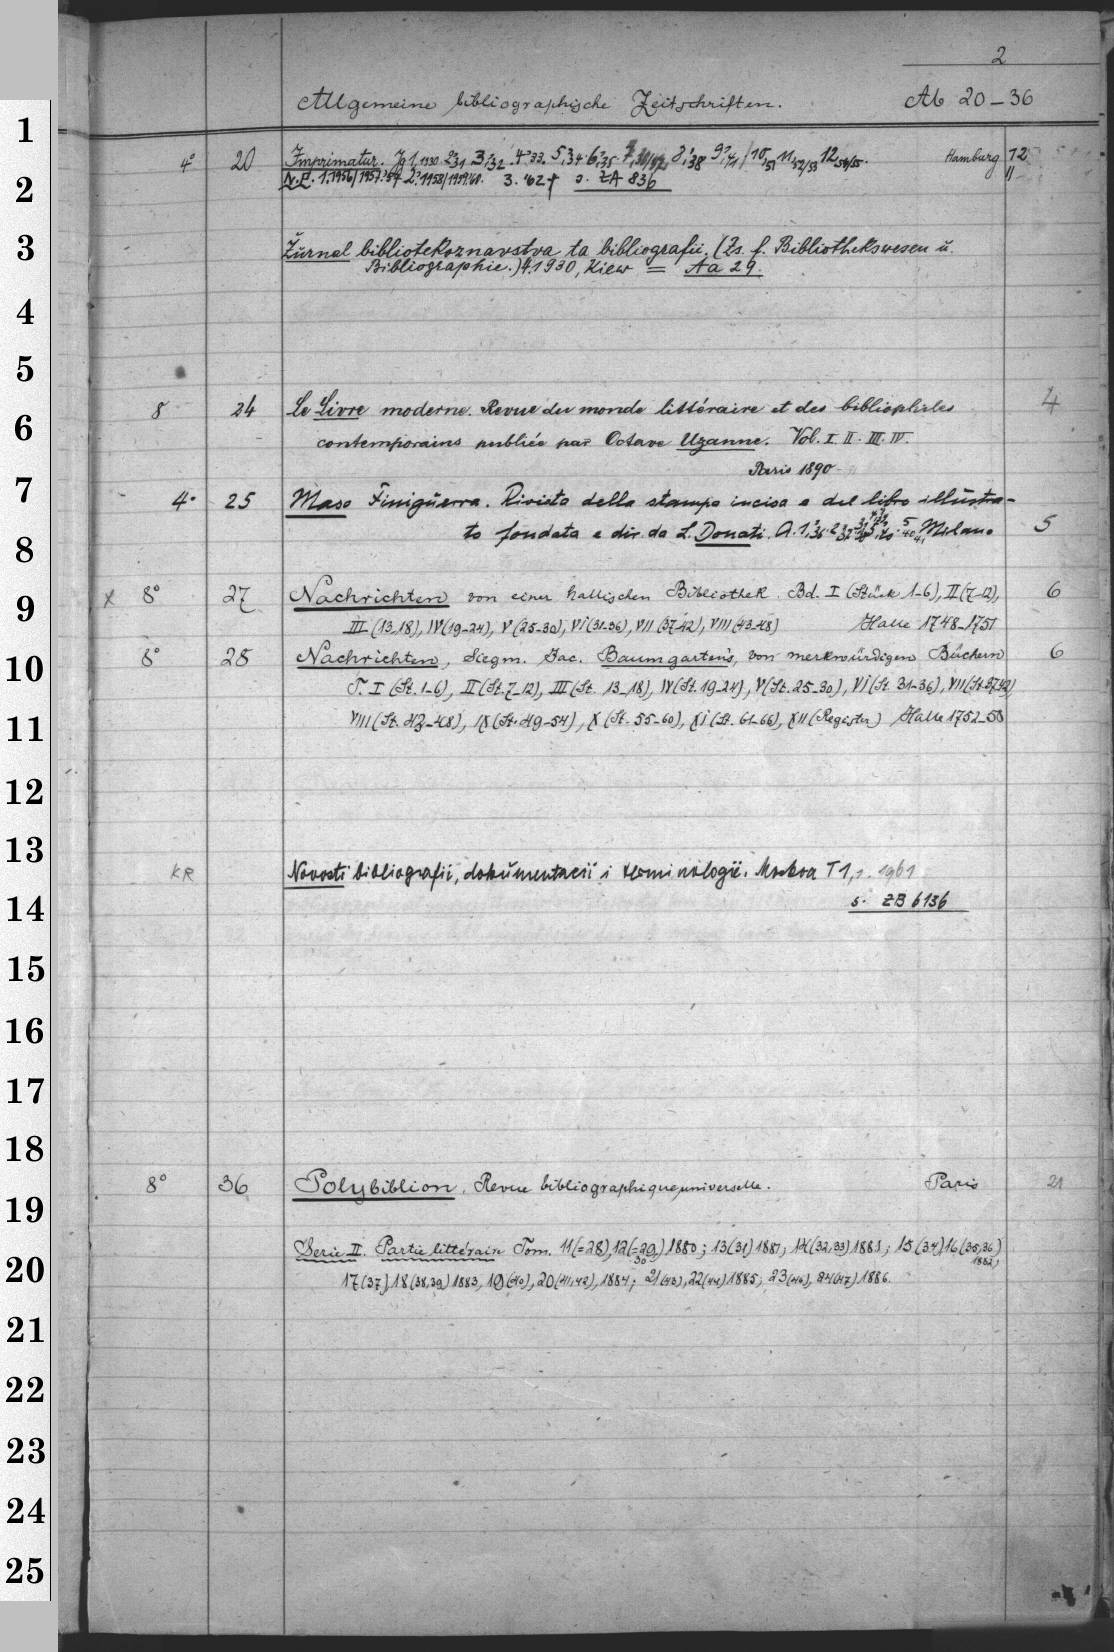 2
Allgemeine bibliographische Zeitschriften. Ab 20-36
1
4° 20 Imprimatur. Jg 1,1930. 2,31. 3,32. 4,33. 5,34. 6,35. 8,38 10,51 11,52/53 12,54/55. Hamburg 12
2
N.F. 1,1956/1957. 2,1958/1959/60. 3. '62 † s. ZA 836 11
3
Žurnal bibliotekoznavstva ta bibliografii. (Zs. f. Bibliothekswesen u.
Bibliographie.) 4.1930, Kiew = Aa 29.
4
5
8 24 Le Livre moderne. Revue du monde littéraire et des bibliophiles 4
6
contemporains publiée par Octave Uzanne. Vol. I II. III. IV.
Paris 1890
7
4° 25 Maso Finiguerra. Rivista della stampa incisa e del libro illustra-
to fondata e dir. da L. Donati. A. 1,36. Milano 5
8
x 8° 27 Nachrichten von einer hallischen Bibliothek. Bd. I (Stück 1-6), II (7-12), 6
9
III (13-18), IV (19-24), V (25-30), VI (31-36), VII (37-42), VIII (43-48) Halle 1748-1751
8° 28 Nachrichten, Siegm. Jac. Baumgarten's, von merkwürdigen Büchern 6
10
T. I (St. 1-6), II (St. 7-12), III (St. 13-18), IV (St. 19-24), V (St. 25-30), VI (St. 31-36), VII (St. 37-42)
VIII (St. 43-48), IX (St. 49-54), X (St. 55-60), XI (St. 61-66), XII (Register) Halle 1752-58
11
12
13
KR Novosti bibliografii, dokumentacii i terminologii. Moskva T 1,1. 1961
14
s. ZB 6136
15
16
17
18
8° 36 Polybiblion. Revue bibliographique universelle. Paris 21
19
Serie II. Partie littérair Tom. 11 (=28), 12 (=29,30) 1880; 13 (31) 1881, 14 (32,33) 1881; 15 (34) 16 (35,36) 1882,
20
17 (37), 18 (38,39) 1883, 19 (40), 20 (41,42), 1884; 21 (43), 22 (44) 1885, 23 (46), 24 (47) 1886.
21
22
23
24
25